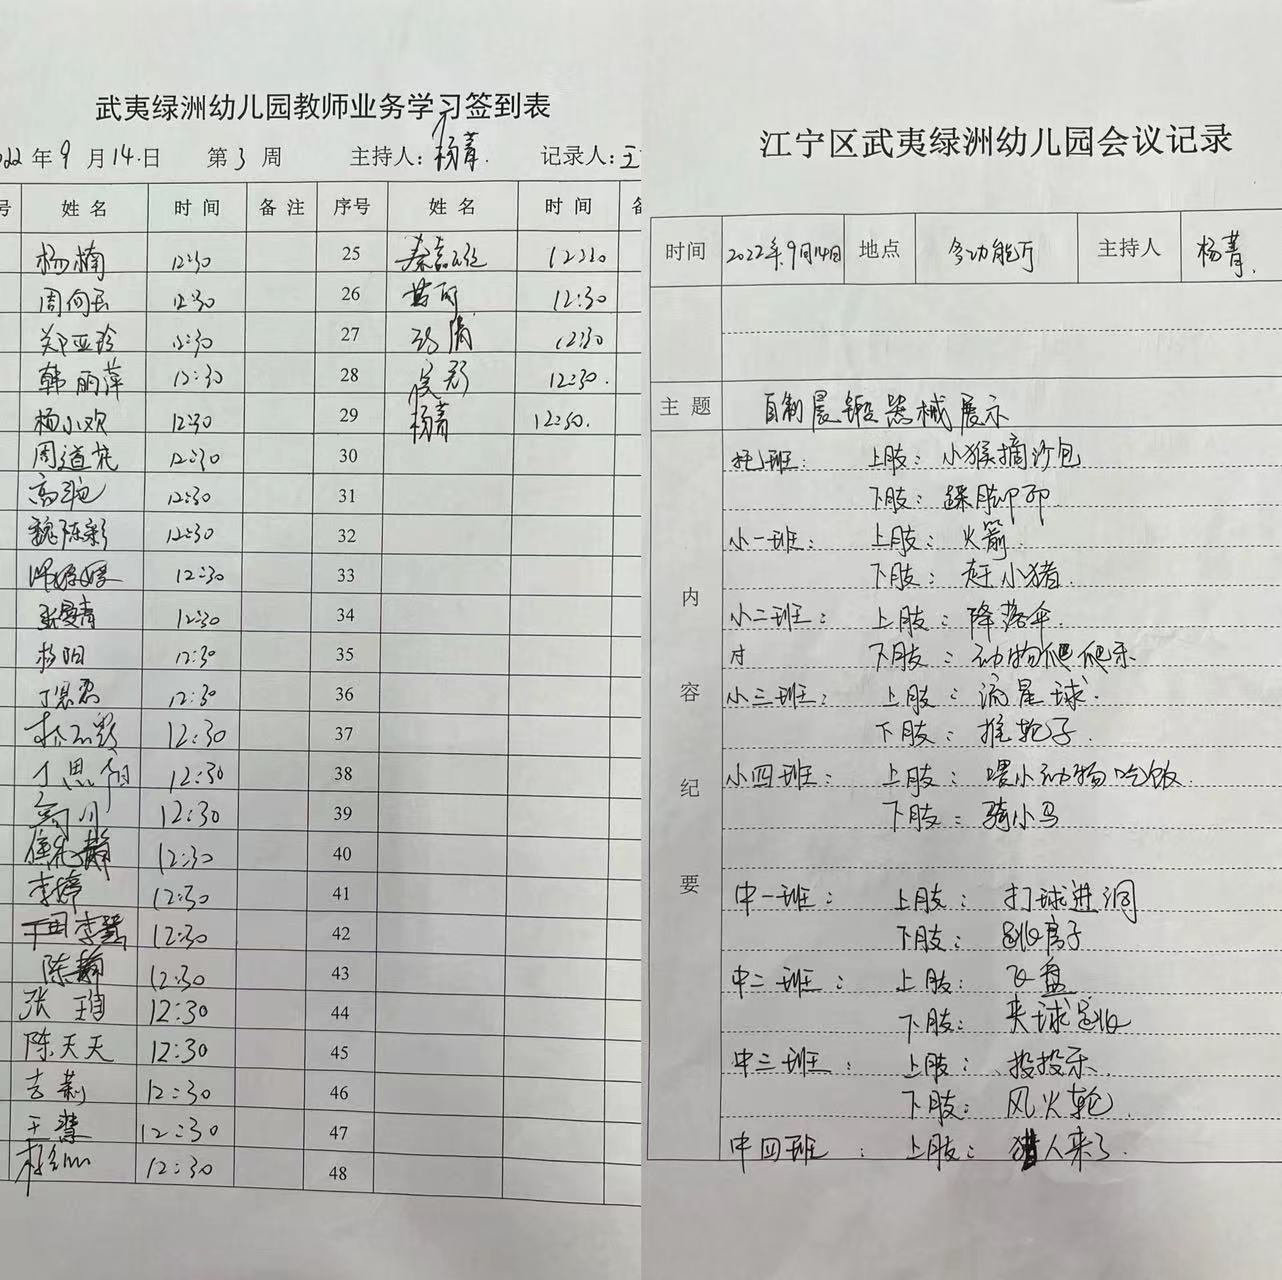 武夷绿洲幼儿园教师业务学习签到表
22 年 9 月 14 日 第 3 周 主持人：杨菁. 记录人：王
号 姓名 时间 备注 序号 姓名 时间 备
杨楠 12:30 25 12:30
周向云 12:30 26 黄可 12:30
郑亚玲 12:30 27 12:30
韩丽萍 12:30 28 12:30.
杨小欢 12:30 29 杨菁 12:30.
周道花 12:30 30
高 12:30 31
魏陈彩 12:30 32
12:30 33
张曼青 12:30 34
杨阳 12:30 35
丁思君 12:30 36
12:30 37
丁思 12:30 38
高川 12:30 39
12:30 40
李婷 12:30 41
12:30 42
陈静 12:30 43
张玥 12:30 44
陈天天 12:30 45
吉莉 12:30 46
王慧 12:30 47
12:30 48
江宁区武夷绿洲幼儿园会议记录
时间 2022年.9月14日 地点 多功能厅 主持人 杨菁.
主题 自制晨锻器械展示
内容纪要
托班： 上肢：小猴摘沙包
下肢：踩脚印
小一班： 上肢：火箭.
下肢：赶小猪.
小二班： 上肢：降落伞.
下肢：动物爬爬乐
小三班： 上肢：流星球.
下肢：推轮子.
小四班： 上肢：喂小动物吃饭.
下肢：骑小马
中一班： 上肢：打球进洞
下肢：跳房子
中二班： 上肢：飞盘
下肢：夹球跳
中三班： 上肢：投投乐.
下肢：风火轮.
中四班： 上肢：猎人来了.